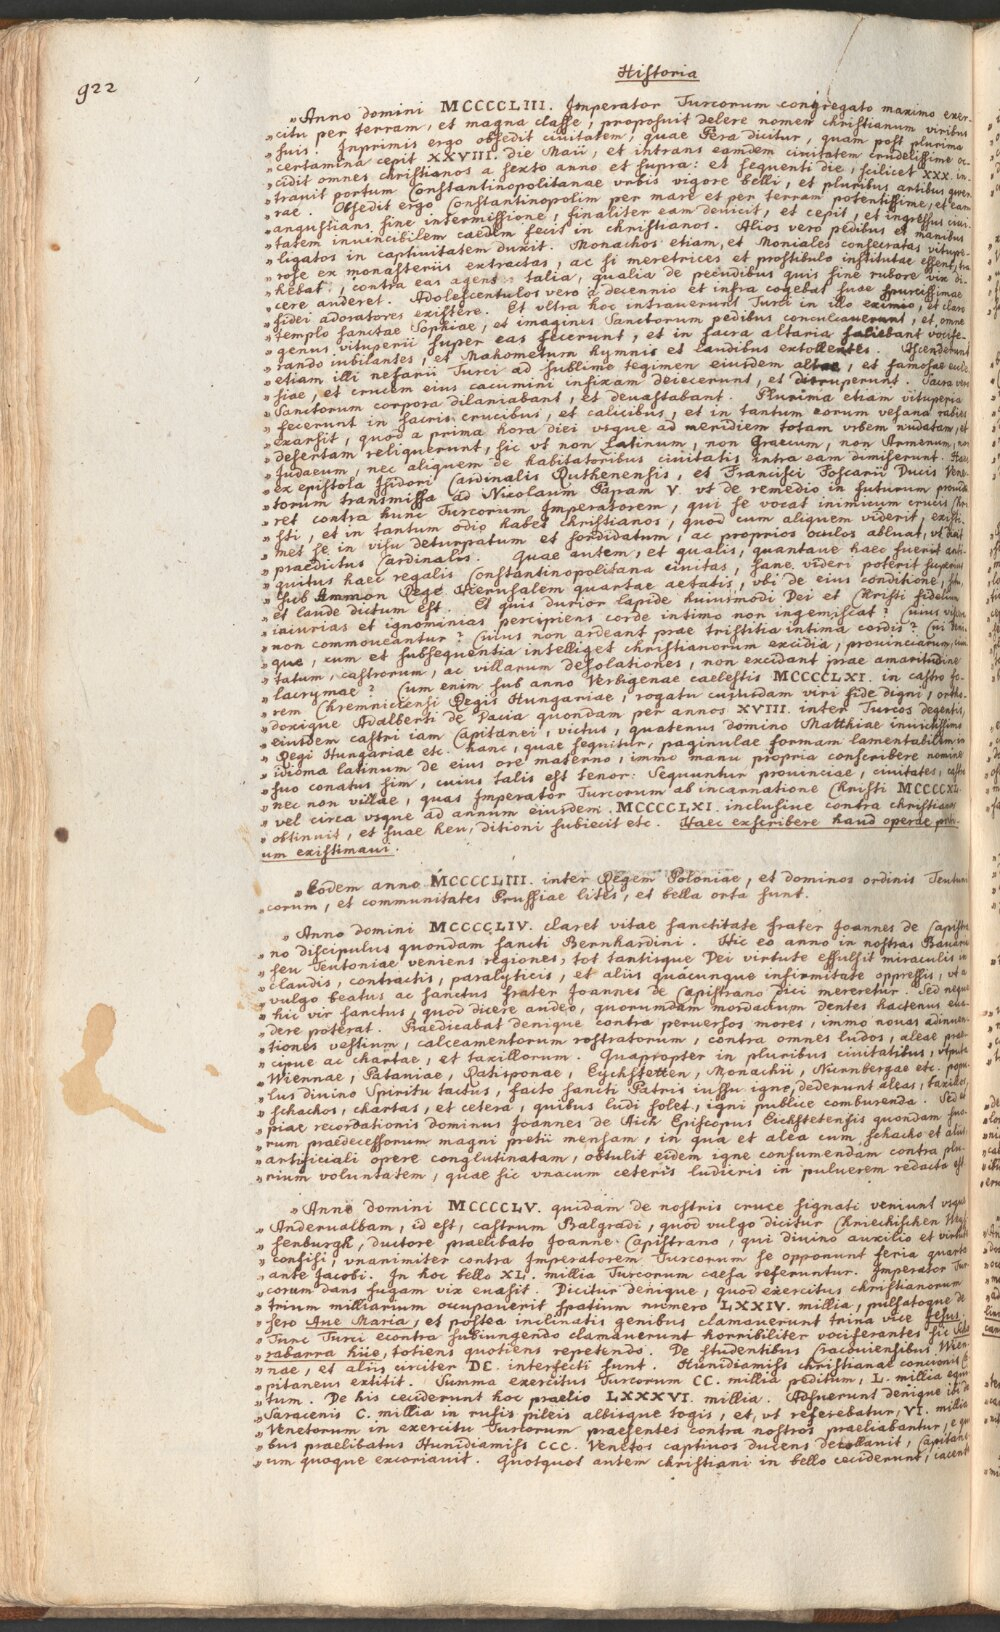 922
Historia
"Anno domini MCCCCLIII. Imperator Turcorum congregato maximo exer-
"citu per terram, et magna classe, proposuit delere nomen christianum viribus
"suis. Inprimis ergo obsedit ciuitatem, quae Pera dicitur, quam post plurima
"certamina cepit XXVIII. die Maii, et intrans eamdem ciuitatem crudelissime oc-
"cidit omnes christianos a sexto anno et supra: et sequenti die, scilicet XXX. in-
"trauit portum Constantinopolitanae vrbis vigore belli, et pluribus artibus guer-
"rae. Obsedit ergo Constantinopolim per mare et per terram potentissime, et eam
"angustians sine intermissione, finaliter eam deuicit, et cepit, et ingressus ciui-
"tatem inuincibilem caedem fecit in christianos. Alios vero pedibus et manibus
"ligatos in captiuitatem duxit. Monachos etiam, et Moniales consecratas vitupe-
"rose ex monasteriis extractas, ac si meretrices et prostibulo institutae essent, tra-
"hebat, contra eas agens talia, qualia de pecudibus quis sine rubore vix di-
"cere auderet. Adolescentulos vero a decennio et infra cogebat suae spurcissimae
"fidei adoratores existere. Et vltra hoc intrauerunt Turci in illo eximio, et claro
"templo sanctae Sophiae, et imagines Sanctorum pedibus conculcauerunt, et omne
"genus vituperii super eas fecerunt, et in sacra altaria saliebant vocife-
"rando iubilantes, et Mahometum hymnis et laudibus extollentes. Ascenderunt
"etiam illi nefarii Turci ad sublime tegimen eiusdem altae, et famosae eccle-
"siae, et crucem eius cacumini infixam deiecerunt, et diruperunt. Sacra vero
"Sanctorum corpora dilaniabant, et deuastabant. Plurima etiam vituperia
"fecerunt in sacris crucibus, et calicibus, et in tantum eorum vesana rabies
"exarsit, quod a prima hora diei vsque ad meridiem totam vrbem nudatam, et
"desertam reliquerunt, sic vt non Latinum, non Graecum, non Armenum, non
"Judaeum, nec aliquem de habitatoribus ciuitatis intra eam dimiserunt. Haec
"ex epistola Isidori Cardinalis Ruthenensis, et Francisci Foscarii Ducis Vene-
"torum transmissa ad Nicolaum Papam V. vt de remedio in futurum prouide-
"ret contra hunc Turcorum Imperatorem, qui se vocat inimicum crucis Chri-
"sti, et in tantum odio habet christianos, quod cum aliquem viderit, existi-
"met se in visu deturpatum et sordidatum, ac proprios oculos abluat, vt dicit
"praedictus Cardinalis. Quae autem, et qualis, quantaue haec fuerit anti-
"quitus haec regalis Constantinopolitana ciuitas, sane videri poterit superius
"sub Ammon Rege Hierusalem quartae aetatis, vbi de eius conditione, situ,
"et laude dictum est. Et quis durior lapide huiusmodi Dei et Christi fidelium
"iniurias et ignominias percipiens corde intimo non ingemiscat? Cuius viscera
"non commoueantur? Cuius non ardeant prae tristitia intima cordis? Cui deni-
"que, cum et subsequentia intelliget christianorum excidia, prouinciarum, ciui-
"tatum, castrorum, ac villarum desolationes, non excidant prae amaritudine
"lacrymae? Cum enim sub anno Verbigenae caelestis MCCCCLXI. in castro fo-
"rem Chremniciensi Regis Hungariae, rogatu cuiusdam viri fide digni, ortho-
"doxique Adalberti de Pacia quondam per annos XVIII. inter Turcos degentis,
"eiusdem castri iam Capitanei, victus, quatenus domino Matthiae inuictissimo
"Regi Hungariae etc. hanc, quae sequitur, paginulae formam lamentabilem in
"idioma latinum de eius ore materno, immo manu propria conscribere nomine
"suo conatus sim, cuius talis est tenor: Sequuntur prouinciae, ciuitates, castra
"nec non villae, quas Imperator Turcorum ab incarnatione Christi MCCCCXL.
"vel circa vsque ad annum eiusdem MCCCCLXI. inclusiue contra christianos
"obtinuit, et suae heu, ditioni subiecit etc. Haec exscribere haud operae preti-
um existimaui.
"Eodem anno MCCCCLIII. inter Regem Poloniae, et dominos ordinis Teuton-
"icorum, et communitates Prussiae lites, et bella orta sunt.
"Anno domini MCCCCLIV. claret vitae sanctitate frater Joannes de Capistra-
"no discipulus quondam sancti Bernhardini. Hic eo anno in nostras Bauariae
"seu Teutoniae veniens regiones, tot tantisque Dei virtute effulsit miraculis in
"claudis, contractis, paralyticis, et aliis quacunque infirmitate oppressis, vt a
"vulgo beatus ac sanctus frater Joannes de Capistrano dici mereretur. Sed neque
"hic vir sanctus, quod dicere audeo, quorumdam mordacium dentes hactenus eua-
"dere poterat. Praedicabat denique contra peruersos mores, immo nouas adinuen-
"tiones vestium, calceamentorum rostratorum, contra omnes ludos, aleae prae-
"cipue ac chartae, et taxillorum. Quapropter in pluribus ciuitatibus, vtpute
"Wiennae, Pataniae, Ratisponae, Eyckstetten, Monachii, Nurnbergae etc. popu-
"lus diuino Spiritu tactus, facto sancti Patris iussu igne, dederunt aleas, taxillos,
"schachos, chartas, et cetera, quibus ludi solet, igni publice comburenda. Sed et
"piae recordationis dominus Joannes de Aich Episcopus Eichstetensis quondam suo-
"rum praedecessorum magni pretii mensam, in qua et alea cum schacho et aliis
"artificiali opere conglutinatam, obtulit eidem igne consumendam contra plu-
"rium voluntatem, quae sic vnacum ceteris ludicris in puluerem redacta est.
"Anno domini MCCCCLV. quidam de nostris cruce signati veniunt vsque
"Anderualbam, id est, castrum Balgradi, quod vulgo dicitur Chriechischen Weis-
"senburgk, ductore praelibato Joanne Capistrano, qui diuino auxilio et virtute
"confisi, vnanimiter contra Imperatorem Turcorum se opponunt feria quarta
"ante Jacobi. In hoc bello XL. millia Turcorum caesa referuntur. Imperator Tur-
"corum dans fugam vix euasit. Dicitur denique, quod exercitus christianorum
"trium milliarium occupauerit spatium numero LXXIV. millia, pulsatoque de
"sero Aue Maria, et postea inclinatis genibus clamauerunt trina vice Jesus.
"Tunc Turci econtra subiungendo clamauerunt horribiliter vociferantes sic
"rabarra hüe, totiens quotiens repetendo. De studentibus Cracouiensibus, Wien-
"nae, et aliis circiter DC. interfecti sunt. Hunidiamiss christianae concionis Ca-
"pitaneus extitit. Summa exercitus Turcorum CC. millia peditum, L. millia equi-
"tum. De his ceciderunt hoc praelio LXXXVI. millia. Adfuerunt denique ibi de
"Saracenis C. millia in rufis pileis albisque togis, et, vt referebatur, VI. millia
"Venetorum in exercitu Turcorum praesentes contra nostros praeliabantur, e qui-
"bus praelibatus Hunidiamiss CCC. Venetos captiuos ducens decollauit, Capitane-
"um quoque excoriauit. Quotquot autem christiani in bello ceciderunt, iacent